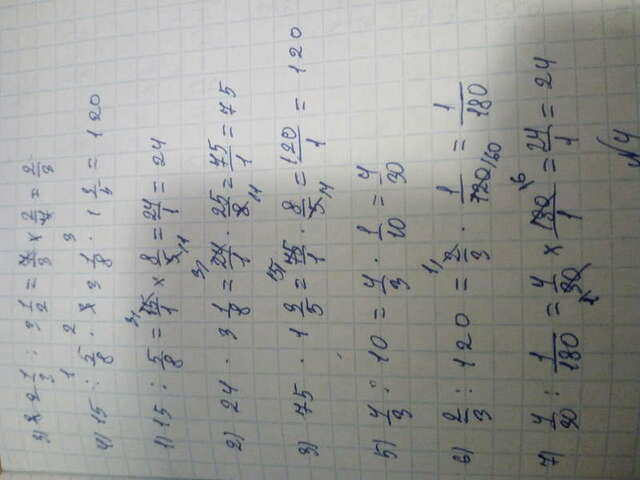 3) 2 1/3 : 3 1/2 = 7/3 × 2/7 = 2/3
4) 15 : 5/8 · 3 1/8 · 1 3/5 = 120
1) 15 : 5/8 = 15/1 × 8/5 = 24/1 = 24
2) 24 · 3 1/8 = 24/1 · 25/8 = 75/1 = 75
3) 75 · 1 3/5 = 75/1 · 8/5 = 120/1 = 120
5) 4/3 : 10 = 4/3 · 1/10 = 4/30
6) 2/3 : 120 = 2/3 · 1/120 = 1/180
7) 4/30 : 1/180 = 4/30 × 180/1 = 24/1 = 24
№4